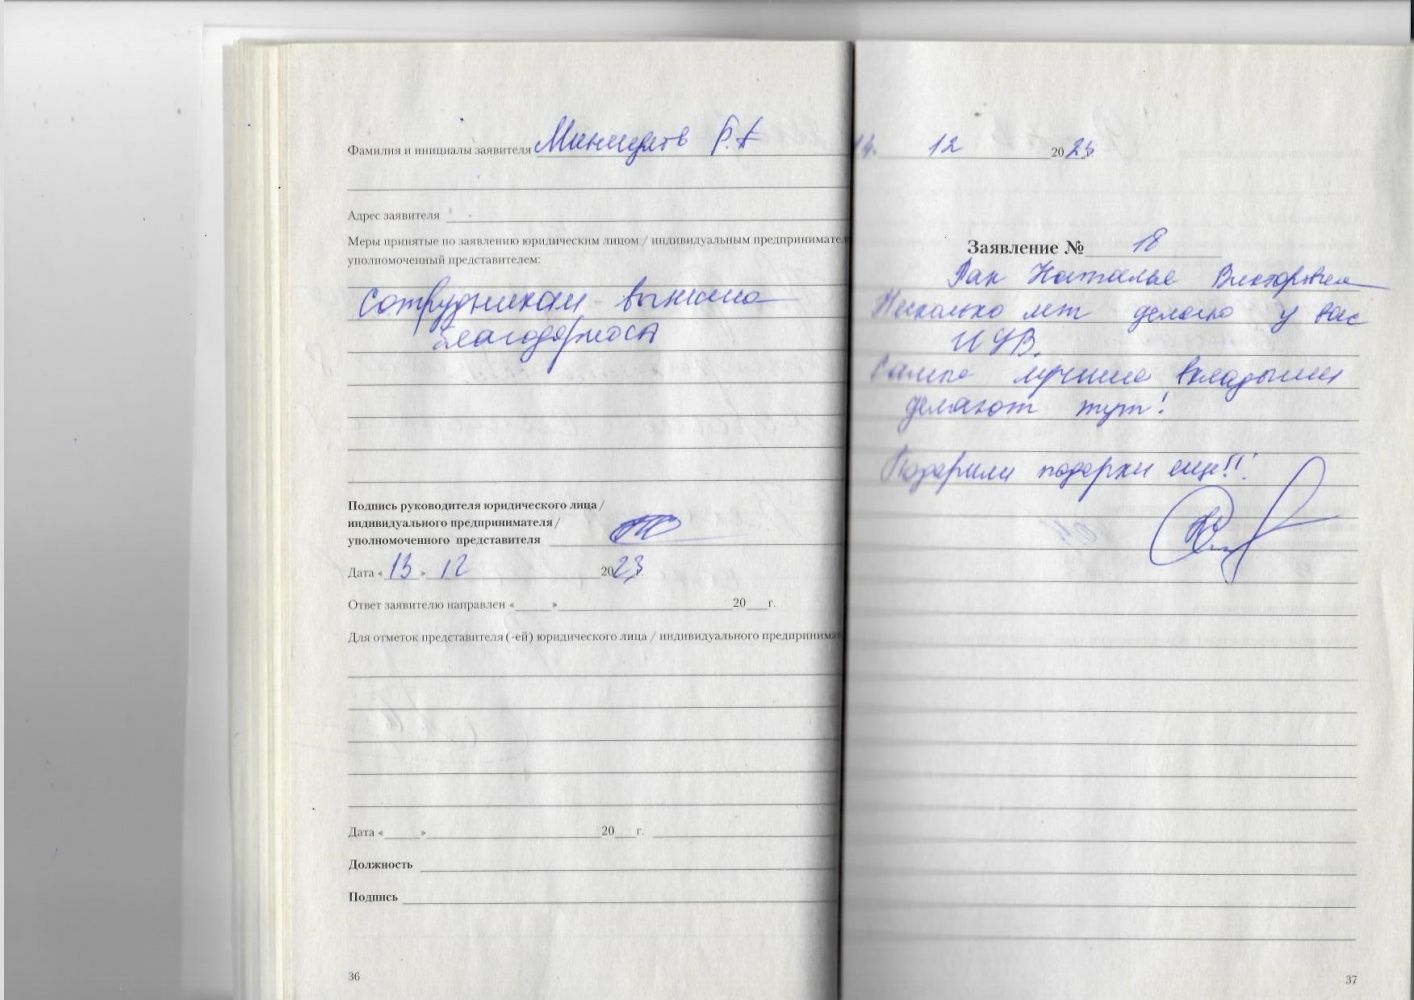 Фамилия и инициалы заявителя
Адрес заявителя
Меры принятые по заявлению юридическим лицом / индивидуальным предпринимател
уполномоченный представителем:
Сотрудникам
благодарност
Подпись руководителя юридического лица /
индивидуального предпринимателя /
уполномоченного представителя
Дата « 13 » 12 2023
Ответ заявителю направлен «____»____ 20__г.
Для отметок представителя (-ей) юридического лица / индивидуального предпринима
Дата «____»____ 20__г.
Должность
Подпись
36
12 2023
Заявление № 18
Рак Наталья Викторовна
Несколько лет делаю у вас
ИУВ.
Самые лучшие вкладыши
делают тут!
Подарили подарки еще!!
37